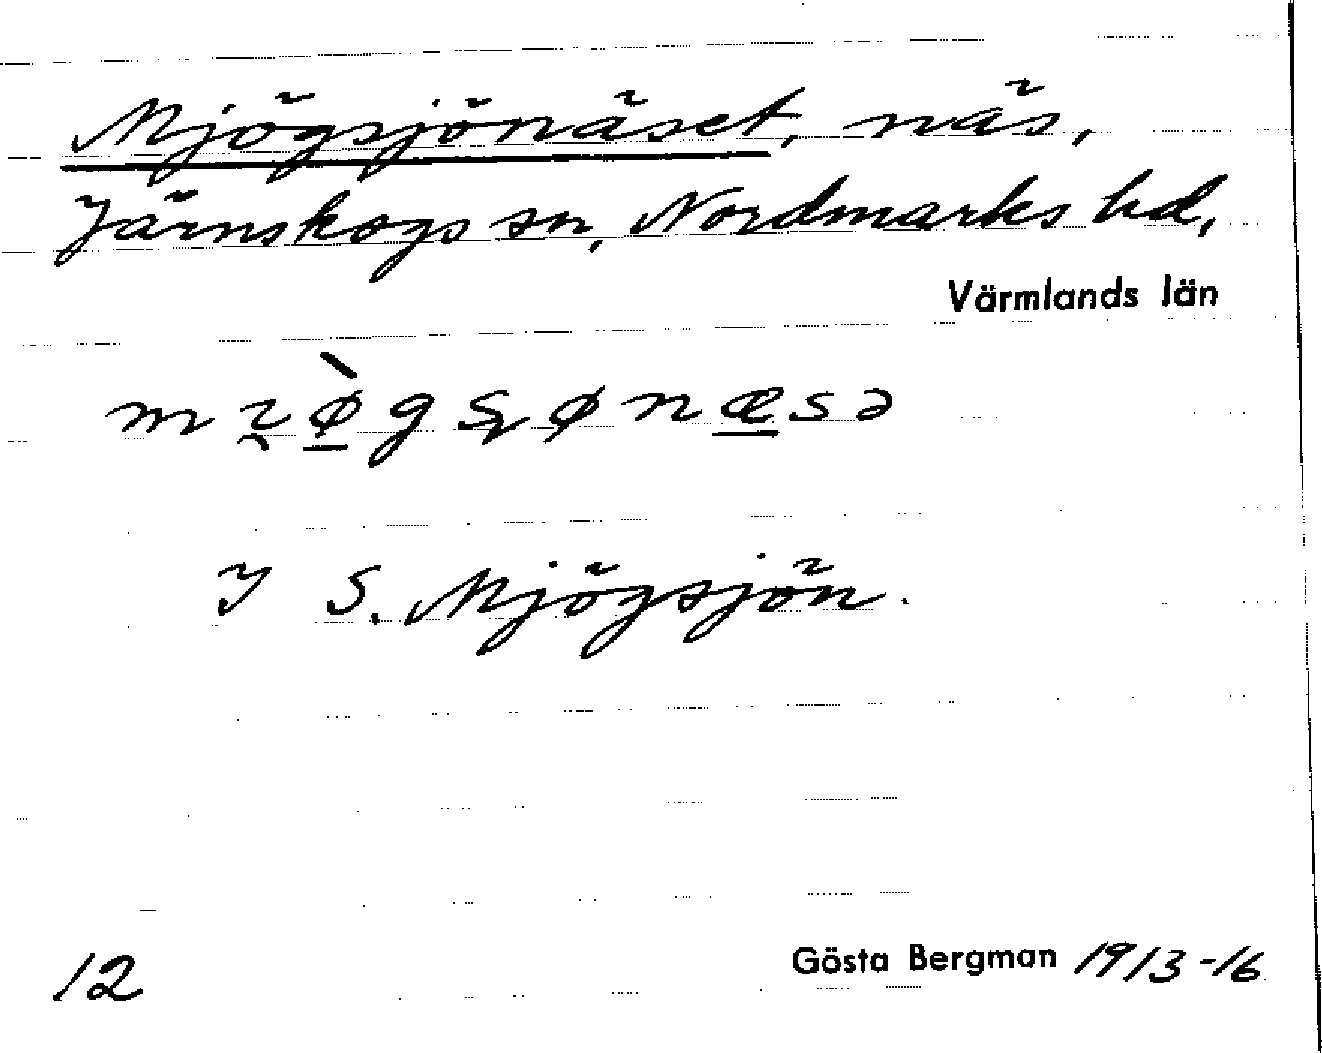 Mjögsjönäset, näs,
Järnskogs sn, Nordmarks hd,
Värmlands län
mı̯ø̱̀gsɟønæ̱sə
I S. Mjögsjön.
12
Gösta Bergman 1913-16